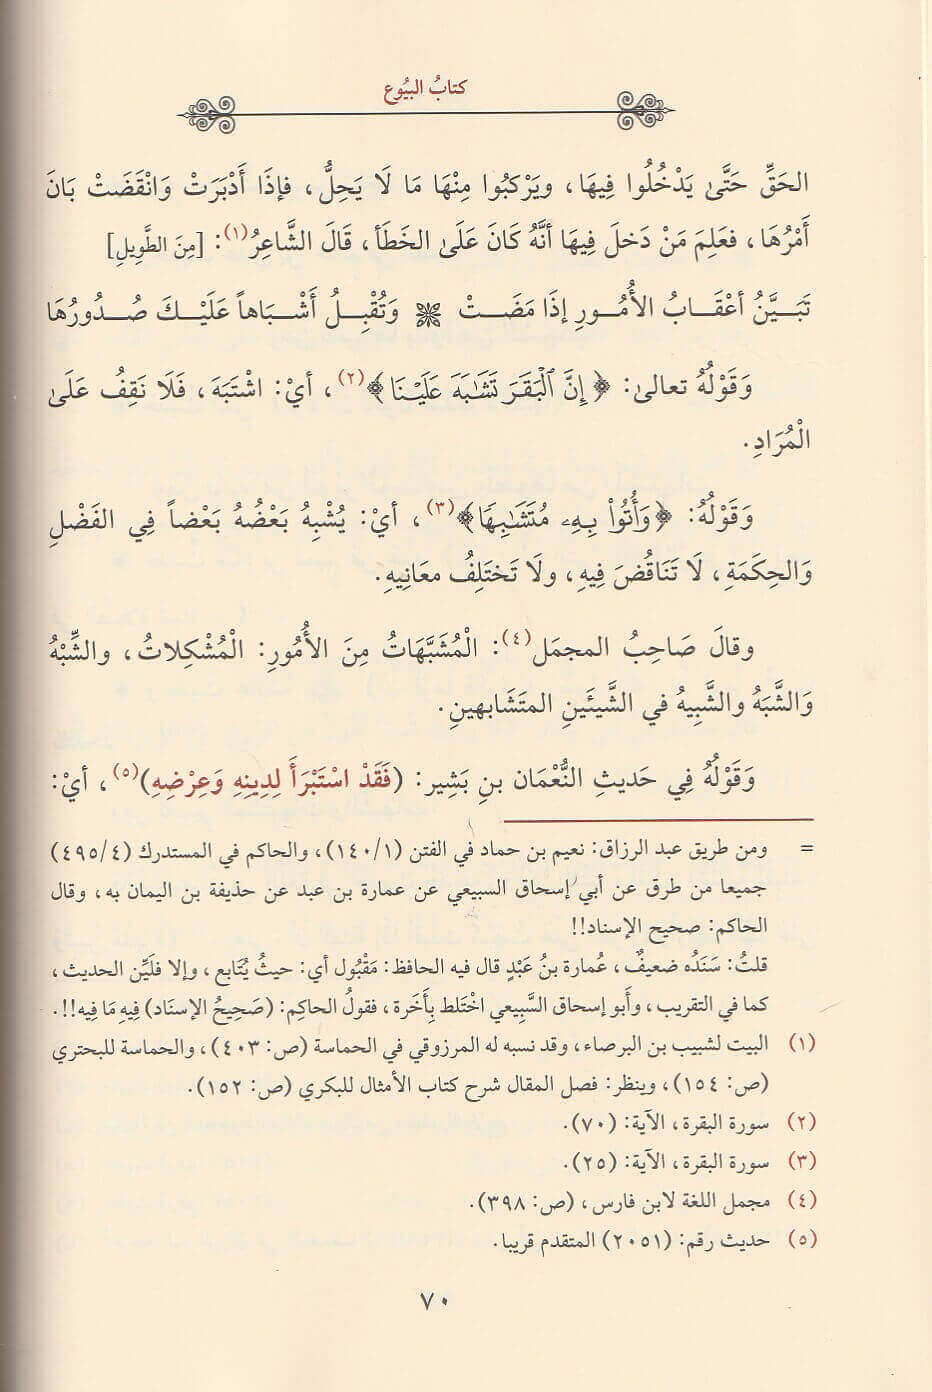 كتابُ البيُوع
الحَقِّ حَتَّىٰ يَدْخُلُوا فِيهَا، ويَرْكَبُوا مِنْهَا مَا لَا يَحِلُّ، فإذَا أَدْبَرَتْ وَانْقَضَتْ بَانَ
أَمْرُهَا، فعَلِمَ مَنْ دَخلَ فِيهَا أنَّهُ كَانَ عَلَىٰ الخَطَأ، قَالَ الشَّاعِرُ(١): [مِنَ الطَّوِيلِ]
تَبَيَّنُ أعْقَابُ الأُمُورِ إذَا مَضَتْ وَتُقْبِلُ أَشْبَاهاً عَلَيْكَ صُدُورُهَا
وَقَوْلُهُ تعالىٰ: ﴿إِنَّ ٱلْبَقَرَ تَشَٰبَهَ عَلَيْنَا﴾(٢)، أيْ: اشْتَبَهَ، فَلَا نَقِفُ عَلَىٰ
الْمُرَادِ.
وَقَوْلُهُ: ﴿وَأُتُواْ بِهِۦ مُتَشَٰبِهًا﴾(٣)، أيْ: يُشْبِهُ بَعْضُهُ بَعْضاً فِي الفَضْلِ
وَالحِكَمَةِ، لَا تَنَاقُضَ فِيهِ، ولَا تَختَلِفُ معَانِيهِ.
وقالَ صَاحِبُ المجمَل(٤): الْمُشَبَّهَاتُ مِنَ الأُمُورِ: الْمُشْكِلاتُ، والشِّبْهُ
وَالشَّبَهُ والشَّبِيهُ في الشَّيئَينِ المتَشَابهينِ.
وَقَوْلُهُ فِي حَديثِ النُّعْمَان بنِ بَشِير: (فَقَدْ اسْتَبْرَأَ لِدِينِهِ وَعِرْضِهِ)(٥)، أيْ:
= ومن طريق عبد الرزاق: نعيم بن حماد في الفتن (١٤٠/١)، والحاكم في المستدرك (٤٩٥/٤)
جميعا من طرق عن أبي إسحاق السبيعي عن عمارة بن عبد عن حذيفة بن اليمان به، وقال
الحاكم: صحيح الإسناد!!
قلتُ: سَنَدُه ضعيفٌ، عُمارة بنُ عَبْدٍ قال فيه الحافظ: مَقْبُول أي: حيثُ يُتَابع، وإلا فلَيِّن الحديث،
كما في التقريب، وأبو إسحاق السَّبِيعي اخْتَلط بِأَخَرة، فقولُ الحاكِم: (صَحِيحُ الإسنَاد) فِيهِ مَا فِيه!!.
(١) البيت لشبيب بن البرصاء، وقد نسبه له المرزوقي في الحماسة (ص: ٤٠٣)، والحماسة للبحتري
(ص: ١٥٤)، وينظر: فصل المقال شرح كتاب الأمثال للبكري (ص: ١٥٢).
(٢) سورة البقرة، الآية: (٧٠).
(٣) سورة البقرة، الآية: (٢٥).
(٤) مجمل اللغة لابن فارس، (ص: ٣٩٨).
(٥) حديث رقم: (٢٠٥١) المتقدم قريبا.
٧٠